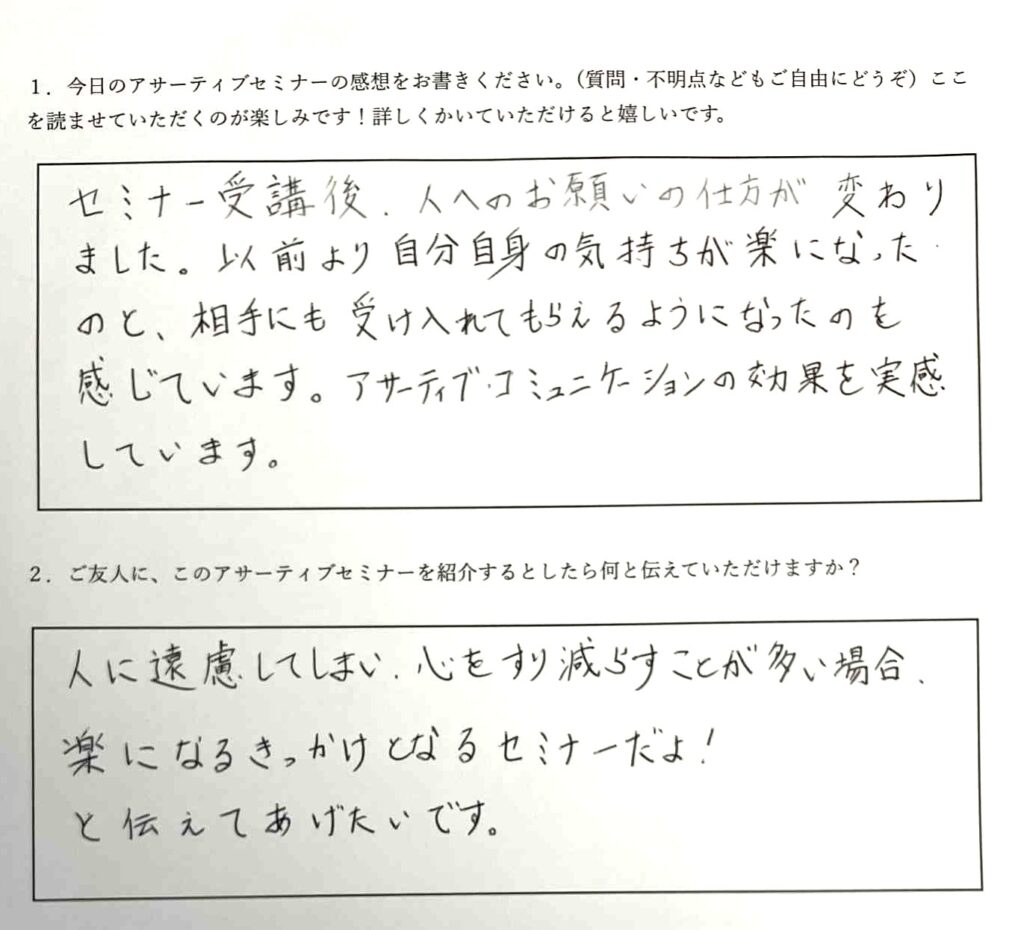 1．今日のアサーティブセミナーの感想をお書きください。（質問・不明点などもご自由にどうぞ）ここ
を読ませていただくのが楽しみです！詳しくかいていただけると嬉しいです。
セミナー受講後、人へのお願いの仕方が変わり
ました。以前より自分自身の気持ちが楽になった
のと、相手にも受け入れてもらえるようになったのを
感じています。アサーティブ・コミュニケーションの効果を実感
しています。
2．ご友人に、このアサーティブセミナーを紹介するとしたら何と伝えていただけますか？
人に遠慮してしまい、心をすり減らすことが多い場合、
楽になるきっかけとなるセミナーだよ！
と伝えてあげたいです。